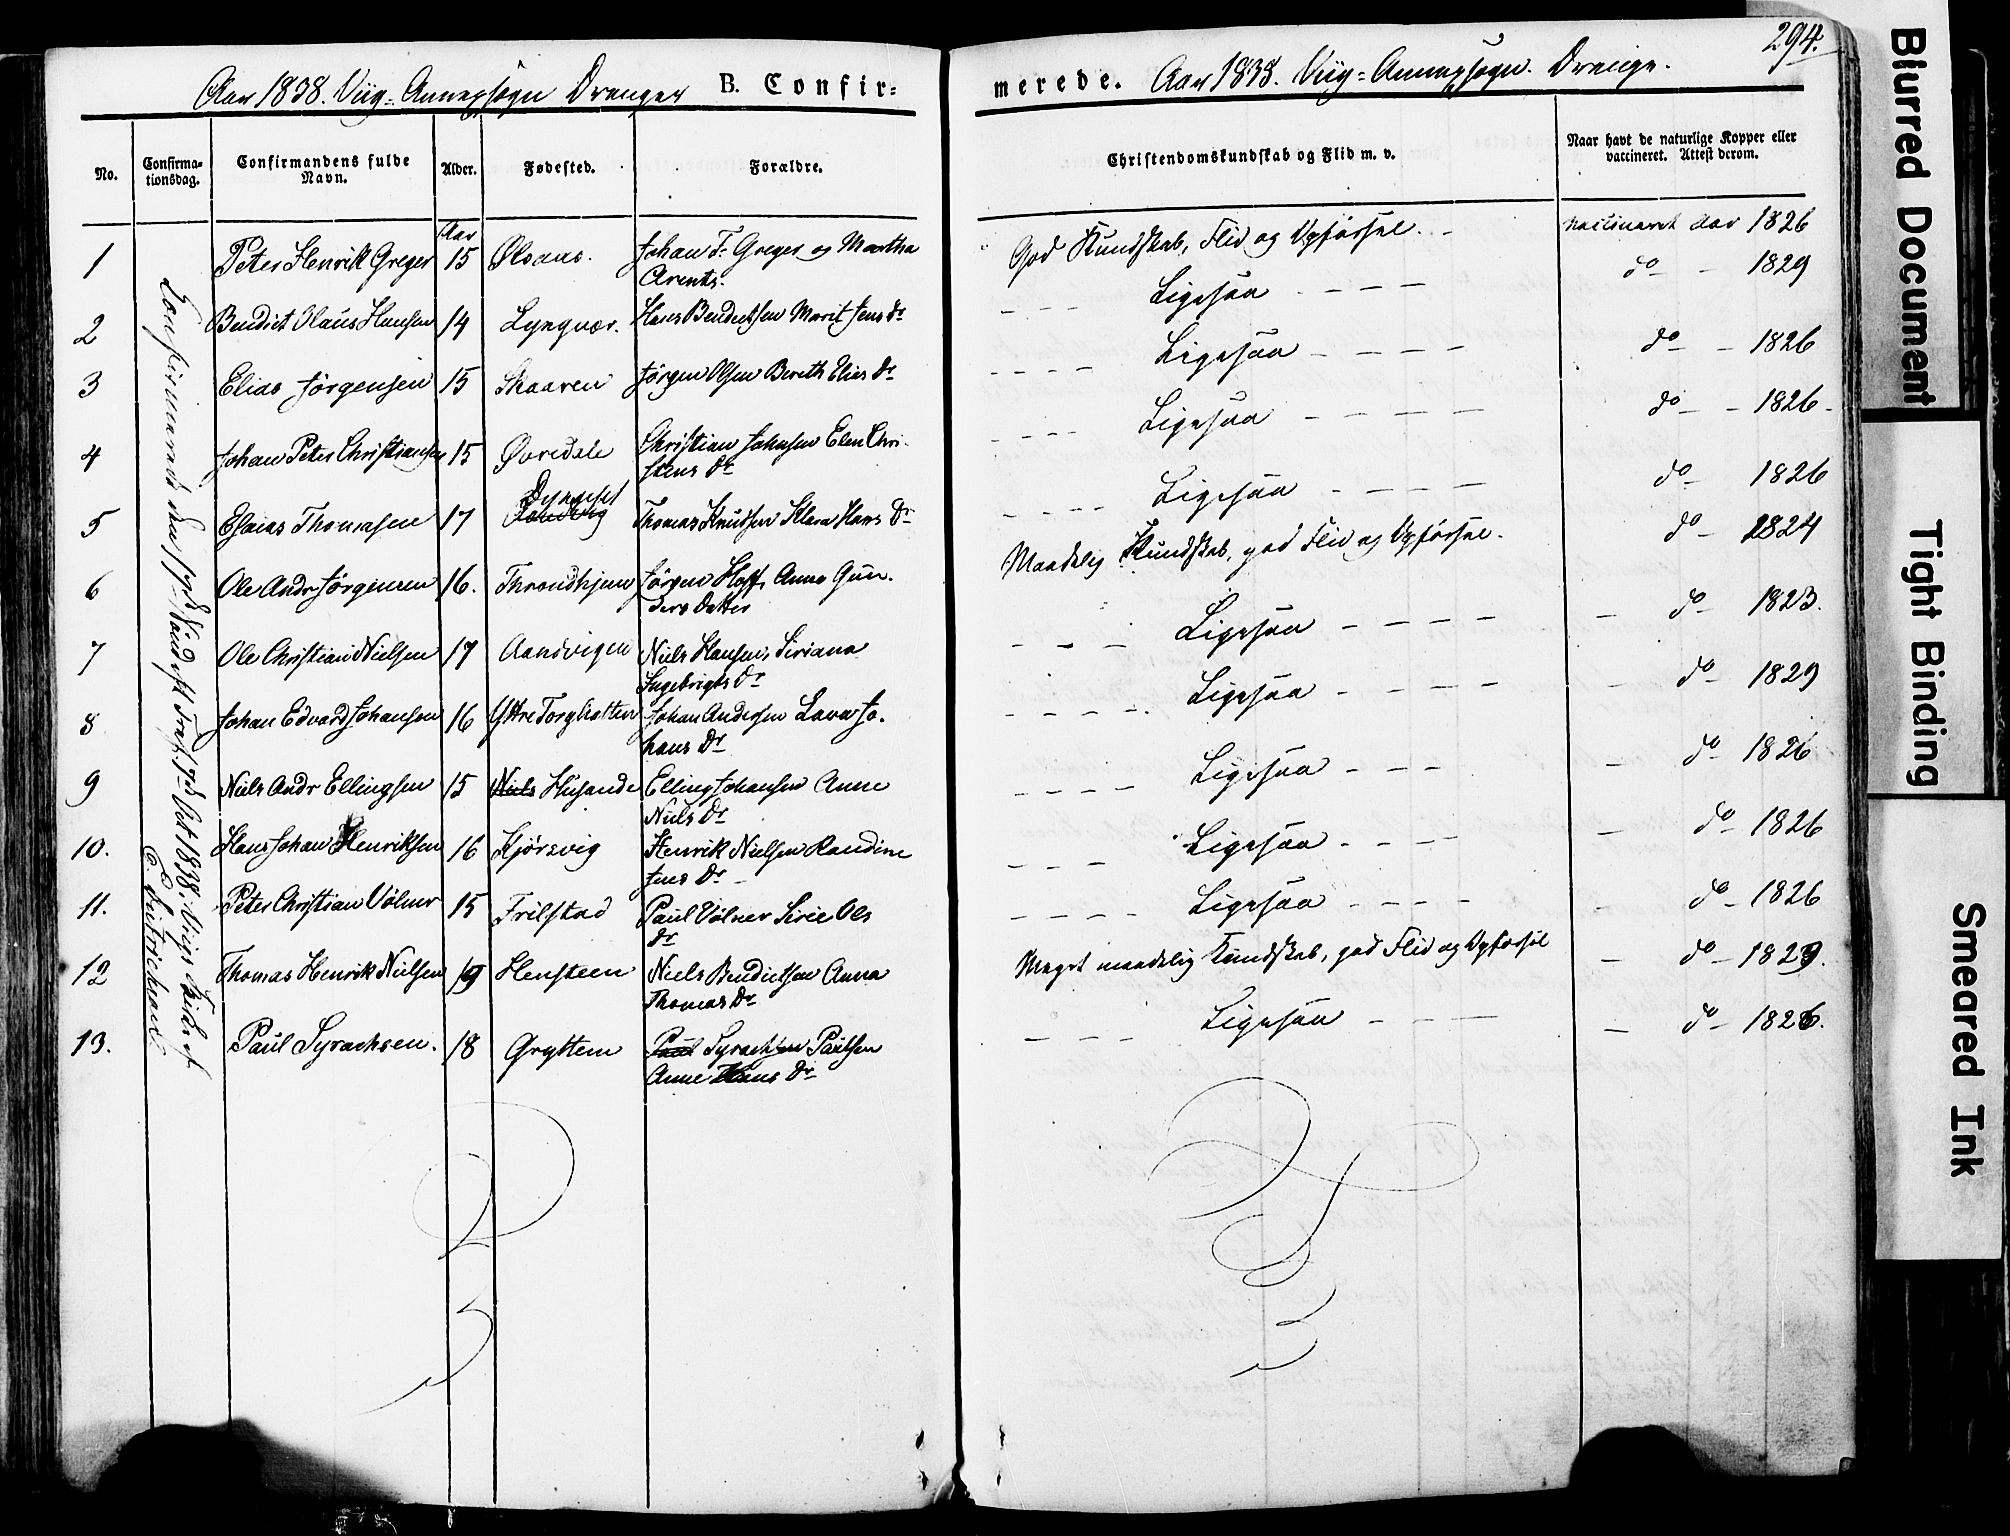 294.
Aar 1838. Viig-Annexsogn Drenger B. Confir=
merede. Aar 1838. Viig=Annexsogn. Drenge.
No.
Confirma-
tionsdag.
Confirmandens fulde
Navn.
Alder.
Fødested.
Forældre.
Christendomskundskab og Flid m. v.
Naar havt de naturlige Kopper eller
vaccineret. Attest derom.
Aar
1 Peter Henrik Greger 15 Ølsaus. Johan F. Greger og Martha
Arents.
God Kundskab, Flid og Opførsel. vaccineret Aar 1826
2 Bendict Olaus Hansen 14 Lyngvær. Hans Bendictsen Marit Jens Dr
Ligesaa do 1829
3 Elias Jørgensen 15 Skaaren Jørgen Olsen Bereth Elias Dr
Ligesaa do 1826
4 Johan Peter Christiansen 15 Øvredale Christian Johnsen Elen Chri-
stens Dr
Ligesaa do 1826
5 Esaias Thomasen 17 Thomas Knudsen Klara Hans Dr
Ligesaa do 1826
6 Ole Andr Jørgensen 16. Throndhjem Jørgen Hoff, Anne Gun-
ders Datter
Maadelig Kundskab, god Flid og Opførsel. do 1824
7 Ole Christian Nielsen 17 Aandvigen Niels Hansen, Siriana
Ingebrigts Dr
Ligesaa do 1823.
8 Johan Edvard Johansen 16 Yttre Torghatten Johan Andersen Lava Jo-
hans Dr
Ligesaa do 1829
9 Niels Andr Ellingsen 15 Niels Husande Elling Johansen Anne
Niels Dr
Ligesaa do 1826
10. Hans Johan Henriksen 16 Kjørsvig Henrik Nielsen Randine
Jens Dr
Ligesaa do 1826
11. Peter Christian Vølner 15 Trælstad Paul Vølner Sirie Ols
Dr
Ligesaa do 1826
12 Thomas Henrik Nielsen 19 Hensteen Niels Bendictsen Anna
Thomas Dr
Meget maadelig Kundskab, god Flid og Opførsel do 1829.
13. Paul Syrachsen. 18 Gryttem Paul Syrachsen Paulsen
Anne Hans Dr
Ligesaa do 1826.
Blurred Document
Tight Binding
Smeared Ink